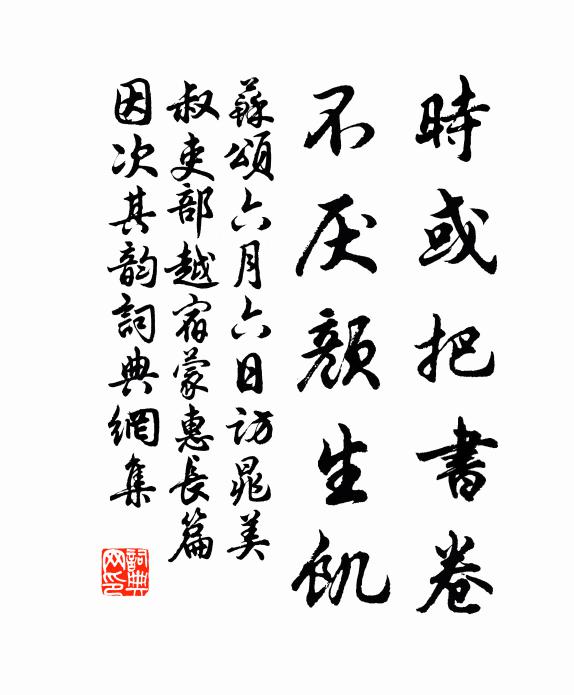 時或把書卷
不厌顏生飢
蘇頌六月六日訪晁美
叔吏部越宿蒙惠長篇
因次其韵詞典網集
詞典网印